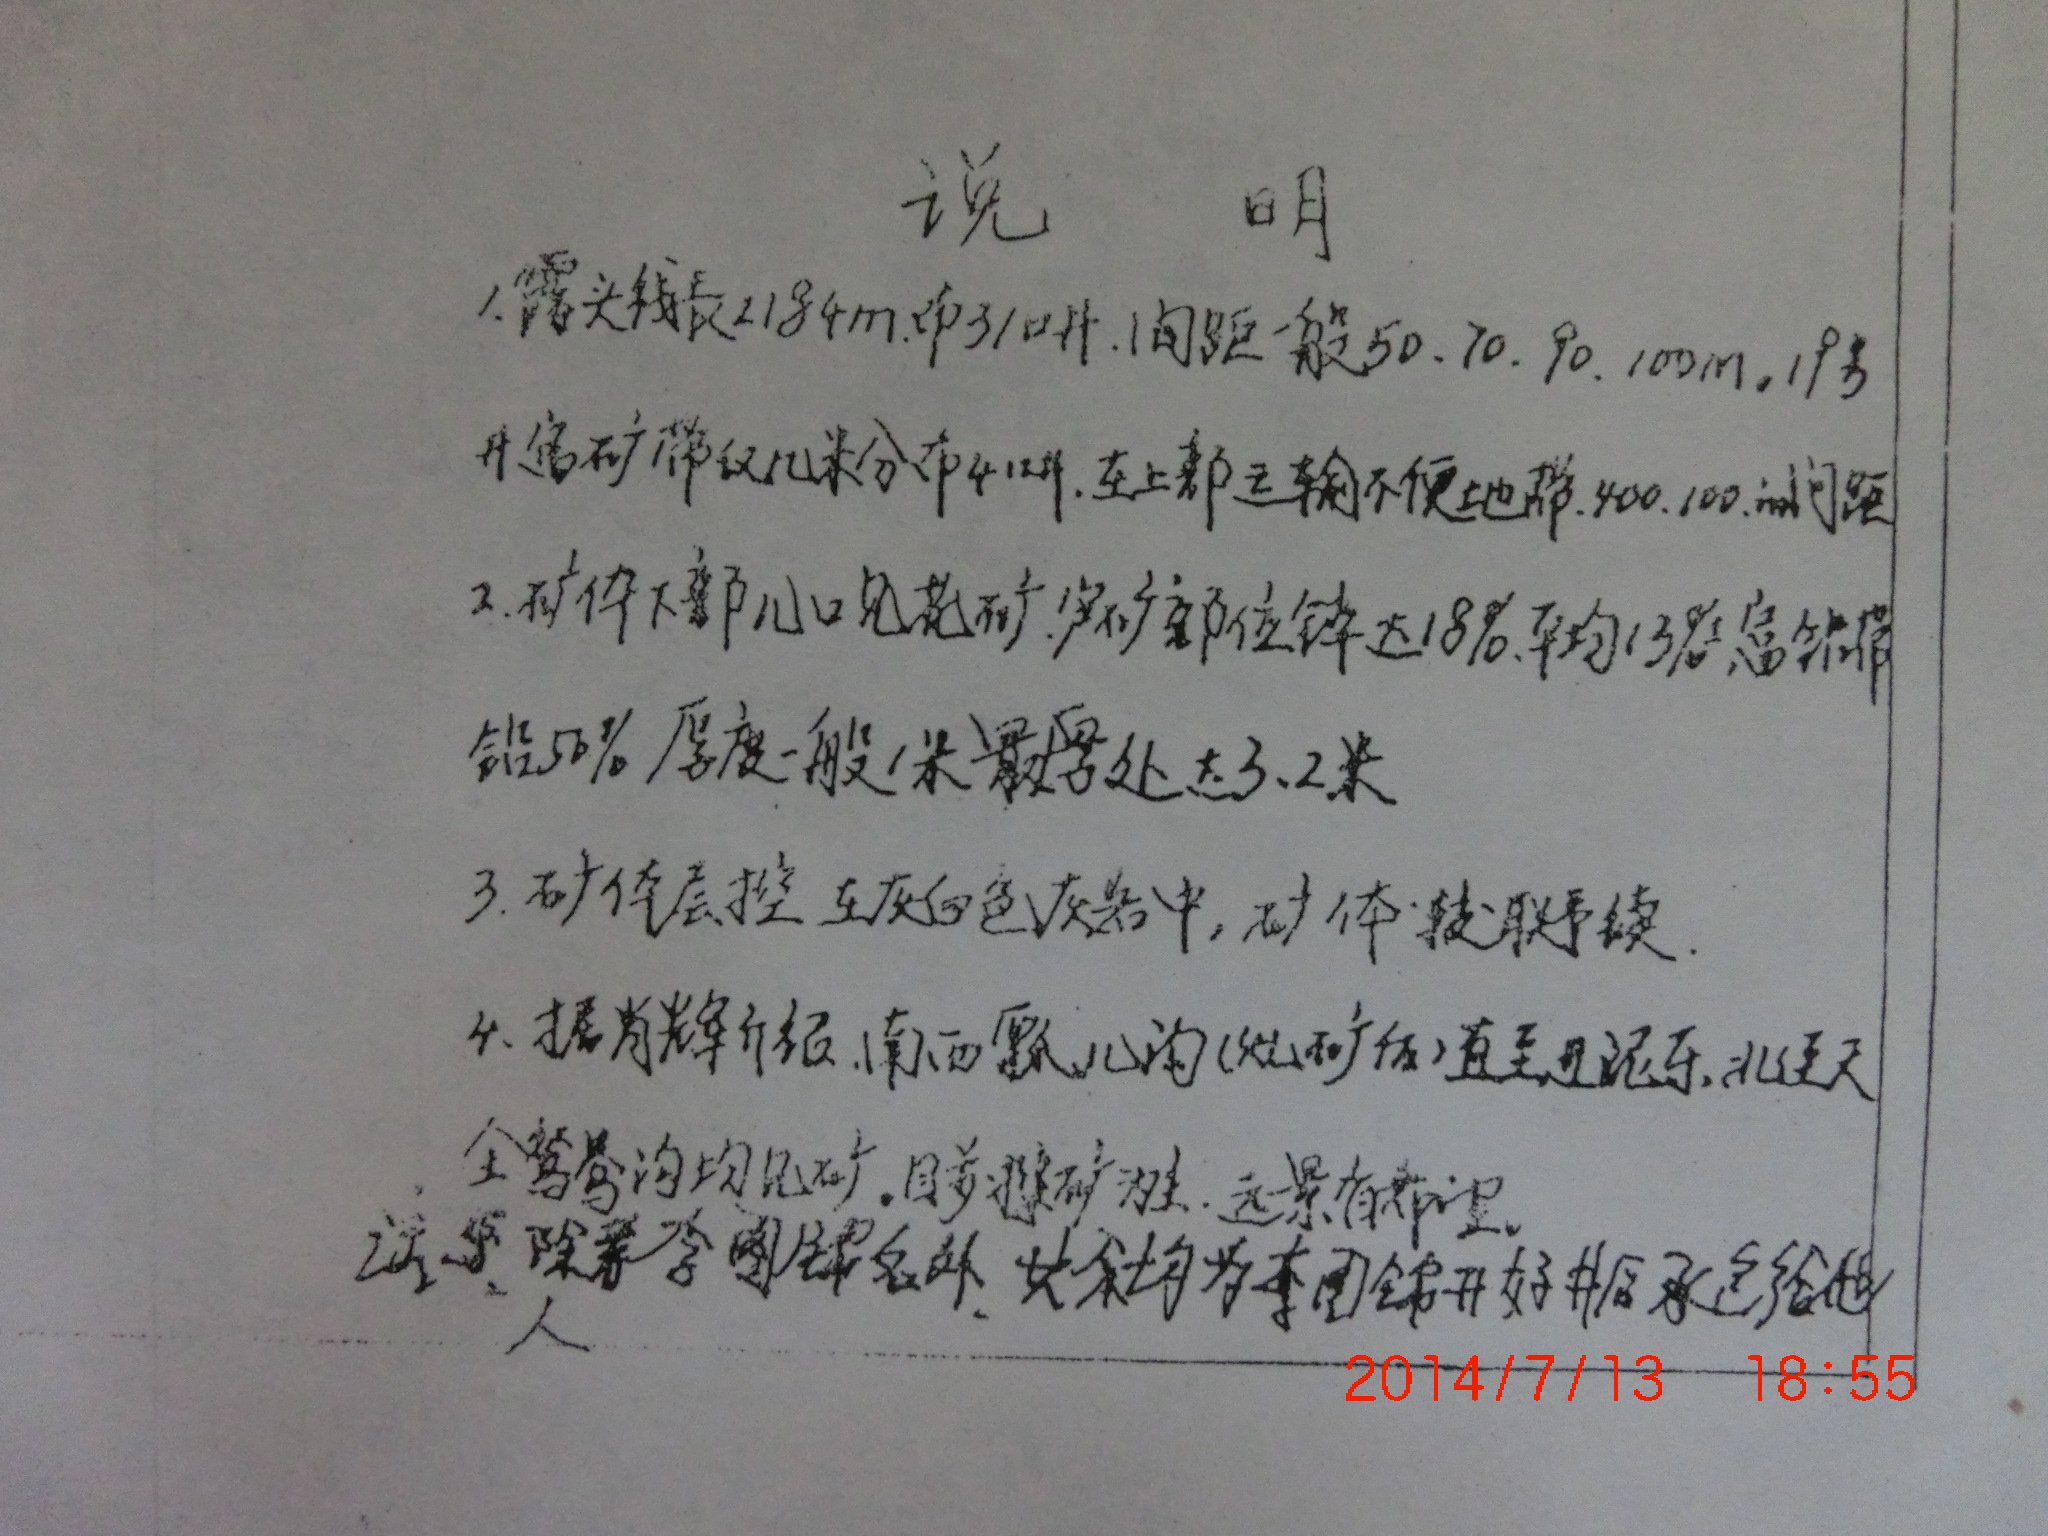 说 明
1.露头线长2184m.布31口井.间距一般50.70.90.100m。19号
井富矿带仅几米分布4口井.在上部运输不便地带.400.100.m间距
2.矿体下部几口见花矿.富矿部位锌达18%.平均13%.富铅带
铅50% 厚度一般1米最厚处达3.2米
3.矿体层控在灰白色灰岩中,矿体 联续.
4.据肖辉介绍.南西瓢儿沟( 矿 )直至 泥 .北至天
全鸳鸯沟均见矿。目前 矿 .远景有希望。
除 李国锦 外、其余均为李国锦开好井后承包给他
人
2014/7/13 18:55